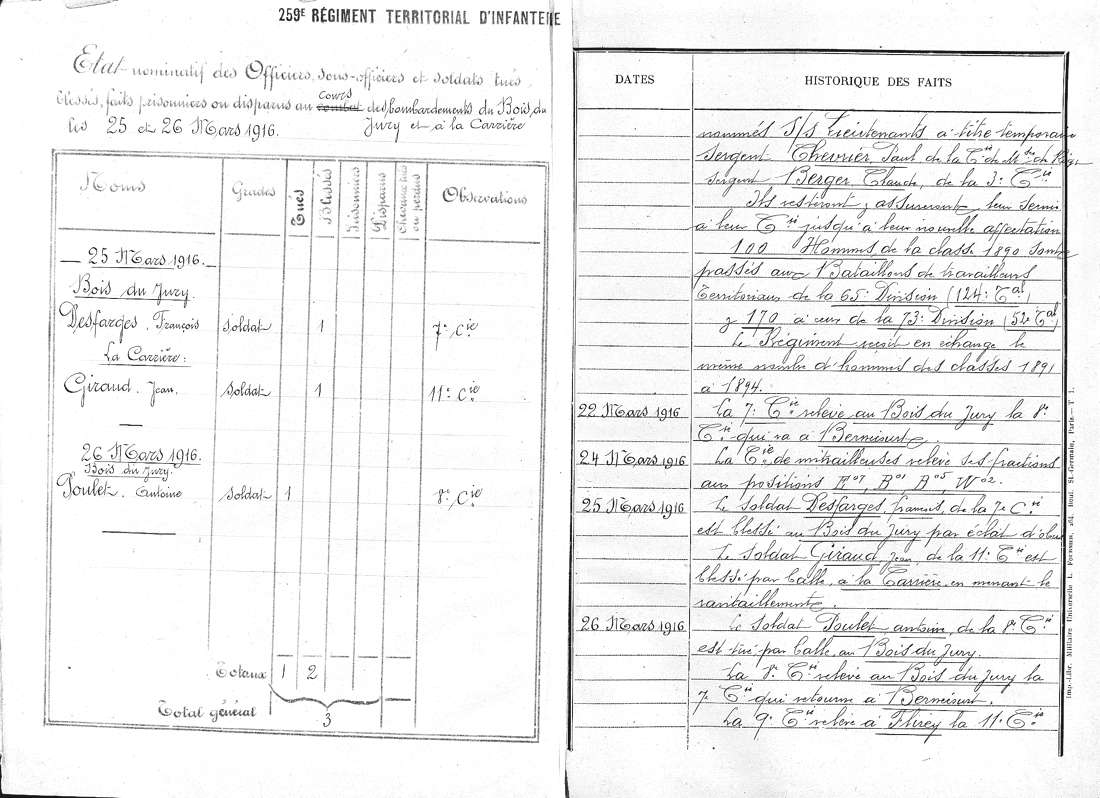 259E RÉGIMENT TERRITORIAL D'INFANTERIE
Etat nominatif des Officiers, sous-officiers et soldats tués
blessés, faits prisonniers ou disparus au combat cours des bombardements du Bois du
les 25 et 26 Mars 1916. Jury et à la Carrière
Noms Grades Tués Blessés Prisonniers Disparus Chevaux tués ou perdus Observations
25 Mars 1916.
Bois du Jury.
Desfarges. François soldat 1 7e Cie
La Carrière:
Giraud. Jean. soldat 1 11e Cie
26 Mars 1916.
Bois du Jury.
Poulet. Antoine soldat 1 8e Cie
Totaux 1 2
Total général 3
DATES HISTORIQUE DES FAITS
nommés S/s Lieutenants à titre temporaire
Sergent Chevrier, Paul de la Cie de
Sergent Berger Claude, de la 3e Cie
Ils resteront, assureront leur service
à leur Cie jusqu'à leur nouvelle affectation
100 Hommes de la classe 1890 sont
passés aux Bataillons de travailleurs
Territoriaux de la 65e Division (124e Tal)
170 à ceux de la 73e Division (52e Tal)
Le Régiment reçoit en échange le
même nombre d'hommes des classes 1891
à 1894.
22 Mars 1916 La 7e Cie relève au Bois du Jury la 8e
Cie qui va à Bernécourt.
24 Mars 1916 La Cie de mitrailleuses relève ses fractions
aux positions
25 Mars 1916 Le soldat Desfarges, François, de la 7e Cie
est blessé au Bois du Jury par éclat d'obus
Le soldat Giraud Jean, de la 11e Cie est
blessé par balle, à la Carrière, en menant le
ravitaillement.
26 Mars 1916 Le soldat Poulet, antoine, de la 8e Cie
est tué par balle, au Bois du Jury.
La 8e Cie relève au Bois du Jury la
7e Cie qui retourne à Bernécourt.
La 9e Cie relève à Flirey la 11e Cie
Imp.-Libr. Militaire Universelle L. Fournier, 264, Boul. St-Germain, Paris.— T 1.